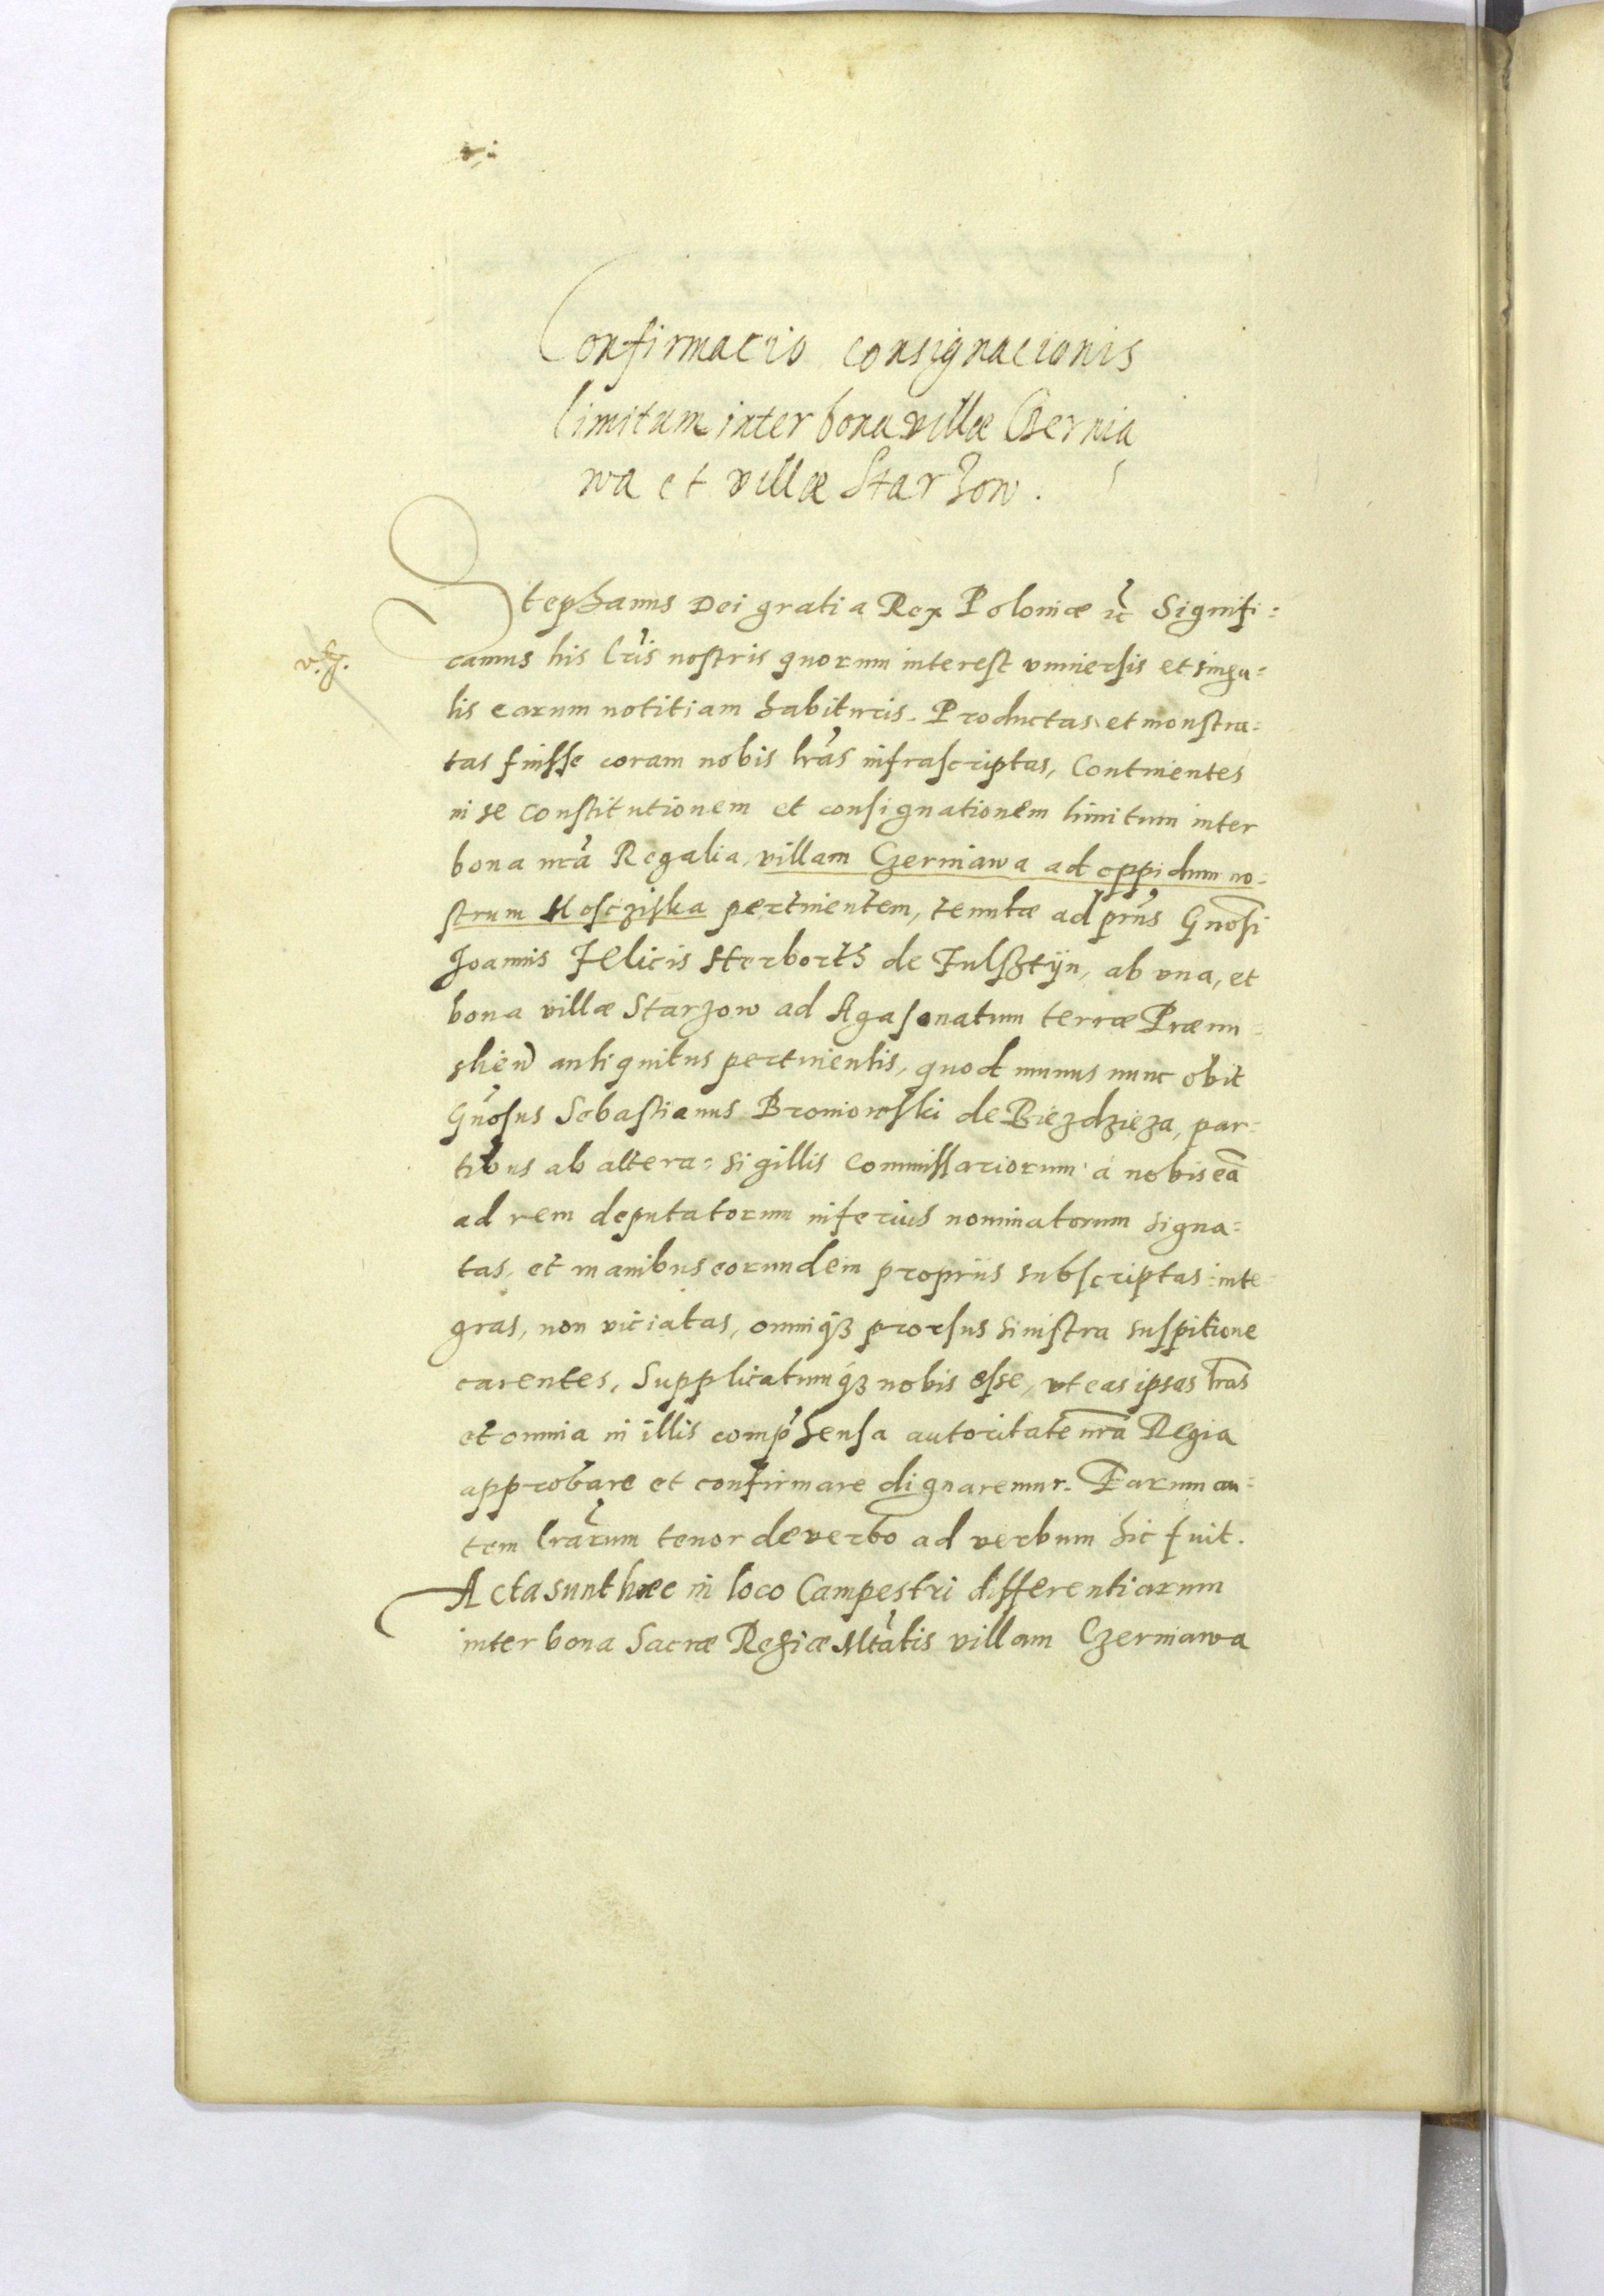 Confirmacio consignacionis
limitum inter bona villæ Czernia
wa et villæ Starzow.
Stephanus Dei gratia Rex Poloniæ &c̃ Signifi=
camus his lris nostris quorum interest vniuersis et singu=
lis earum notitiam habituris. Productas et monstra=
tas fuisse coram nobis lras infrascriptas, Continentes
in se Constitutionem et consignationem limitum inter
bona nra Regalia, villam Czerniawa ad oppidum no=
strum Mosciziska pertinentem, tenutæ ad prns Gnosi
Joannis Felicis Herborth de Fulsztijn, ab vna, et
bona villæ Starzow ad Agasonatum terræ Præmi=
slien antiquitus pertinentis, quod munus nunc obit
Gnosus Sebastianus Broniowski de Biezdzieza, par=
tibus ab altera: sigillis Commissariorum à nobis eã
ad rem deputatorum inferius nominatorum signa=
tas, et manibus eorundem propriis subscriptas: inte
gras, non viciatas, omniq3 prorsus sinistra suspitione
carentes, Supplicatumq3 nobis esse, vt eas ipsas lras
et omnia in illis comphensa autoritate nra Regia
approbare et confirmare dignaremur. Earum au=
tem lrarum tenor de verbo ad verbum hic fuit.
Acta sunt hæc in loco Campestri differentiarum
inter bona Sacræ Regiæ Mtatis villam Czerniawa